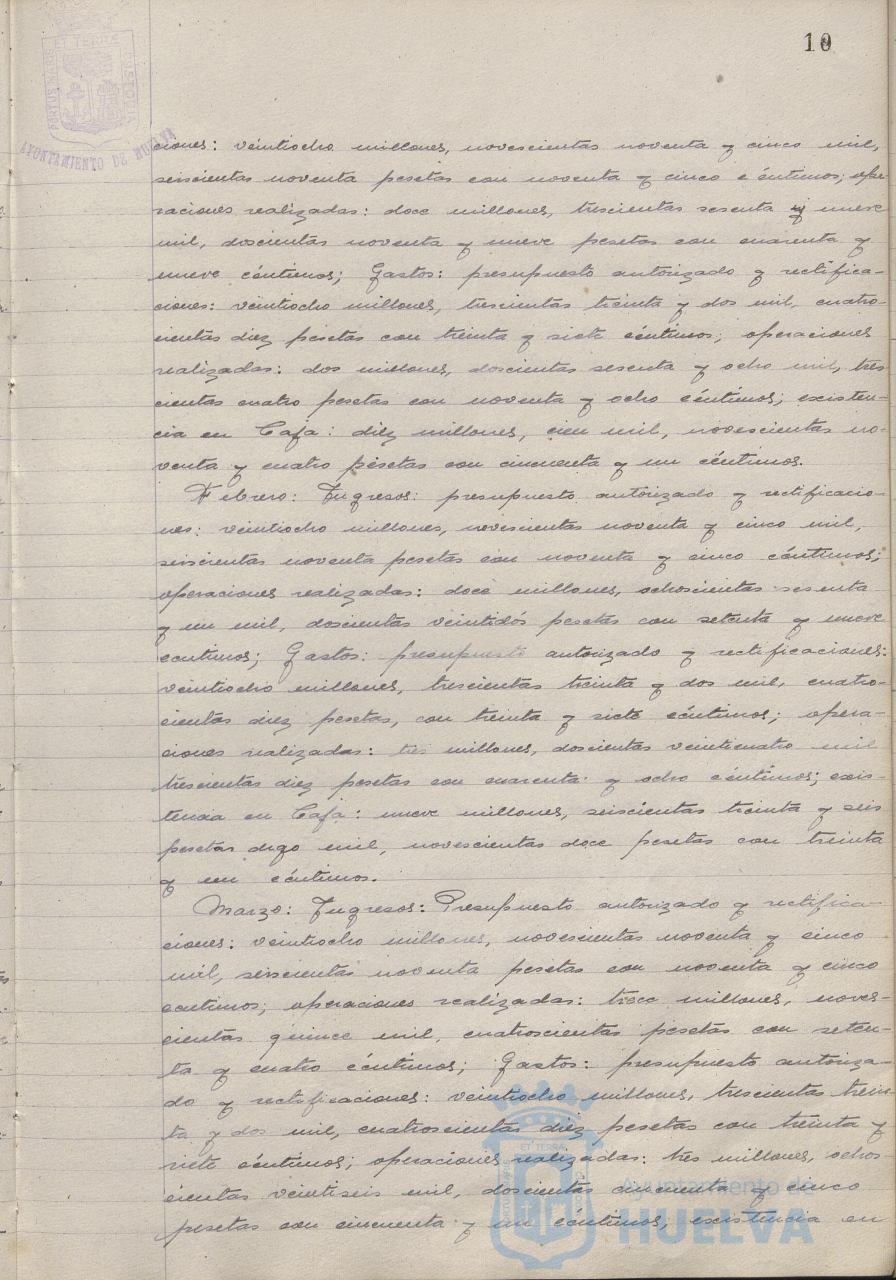 10
PORTUS MARIS ET TERRAE CUSTODIA
AYUNTAMIENTO DE HUELVA
ciones: veintiocho millones, novescientas noventa y cinco mil,
seiscientas noventa pesetas con noventa y cinco céntimos; ope-
raciones realizadas: doce millones, trescientas sesenta y nueve
mil, doscientas noventa y nueve pesetas con cuarenta y
nueve céntimos; Gastos: presupuesto autorizado y rectifica-
ciones: veintiocho millones, trescientas treinta y dos mil, cuatro-
cientas diez pesetas con treinta y siete céntimos; operaciones
realizadas: dos millones, doscientas sesenta y ocho mil, tres
cientas cuatro pesetas con noventa y ocho céntimos; existen-
cia en Caja: diez millones, cien mil, novescientas no-
venta y cuatro pesetas con cincuenta y un céntimos.
Febrero: Ingresos: presupuesto autorizado y rectificacio-
nes: veintiocho millones, novescientas noventa y cinco mil,
seiscientas noventa pesetas con noventa y cinco céntimos;
operaciones realizadas: doce millones, ochoscientas sesenta
y un mil, doscientas veintidós pesetas con setenta y nueve
centimos; Gastos: presupuesto autorizado y rectificaciones:
veintiocho millones, trescientas treinta y dos mil, cuatro-
cientas diez pesetas, con treinta y siete céntimos; opera-
ciones realizadas: tres millones, doscientas veinticuatro mil
trescientas diez pesetas con cuarenta y ocho céntimos; exis-
tencia en Caja: nueve millones, seiscientas treinta y seis
pesetas digo mil, novescientas doce pesetas con treinta
y un céntimos.
Marzo: Ingresos: Presupuesto autorizado y rectifica-
ciones: veintiocho millones, novescientas noventa y cinco
mil, seiscientas noventa pesetas con noventa y cinco
centimos; operaciones realizadas: trece millones, noves-
cientas quince mil, cuatroscientas pesetas con seten-
ta y cuatro céntimos; Gastos: presupuesto autoriza-
do y rectificaciones: veintiocho millones, trescientas trein
ta y dos mil, cuatroscientas diez pesetas con treinta y
siete céntimos; operaciones realizadas: tres millones, ochos-
cientas veintiseis mil, doscientas cincuenta y cinco
pesetas con cincuenta y un céntimos; existencia en
Ayuntamiento de
HUELVA